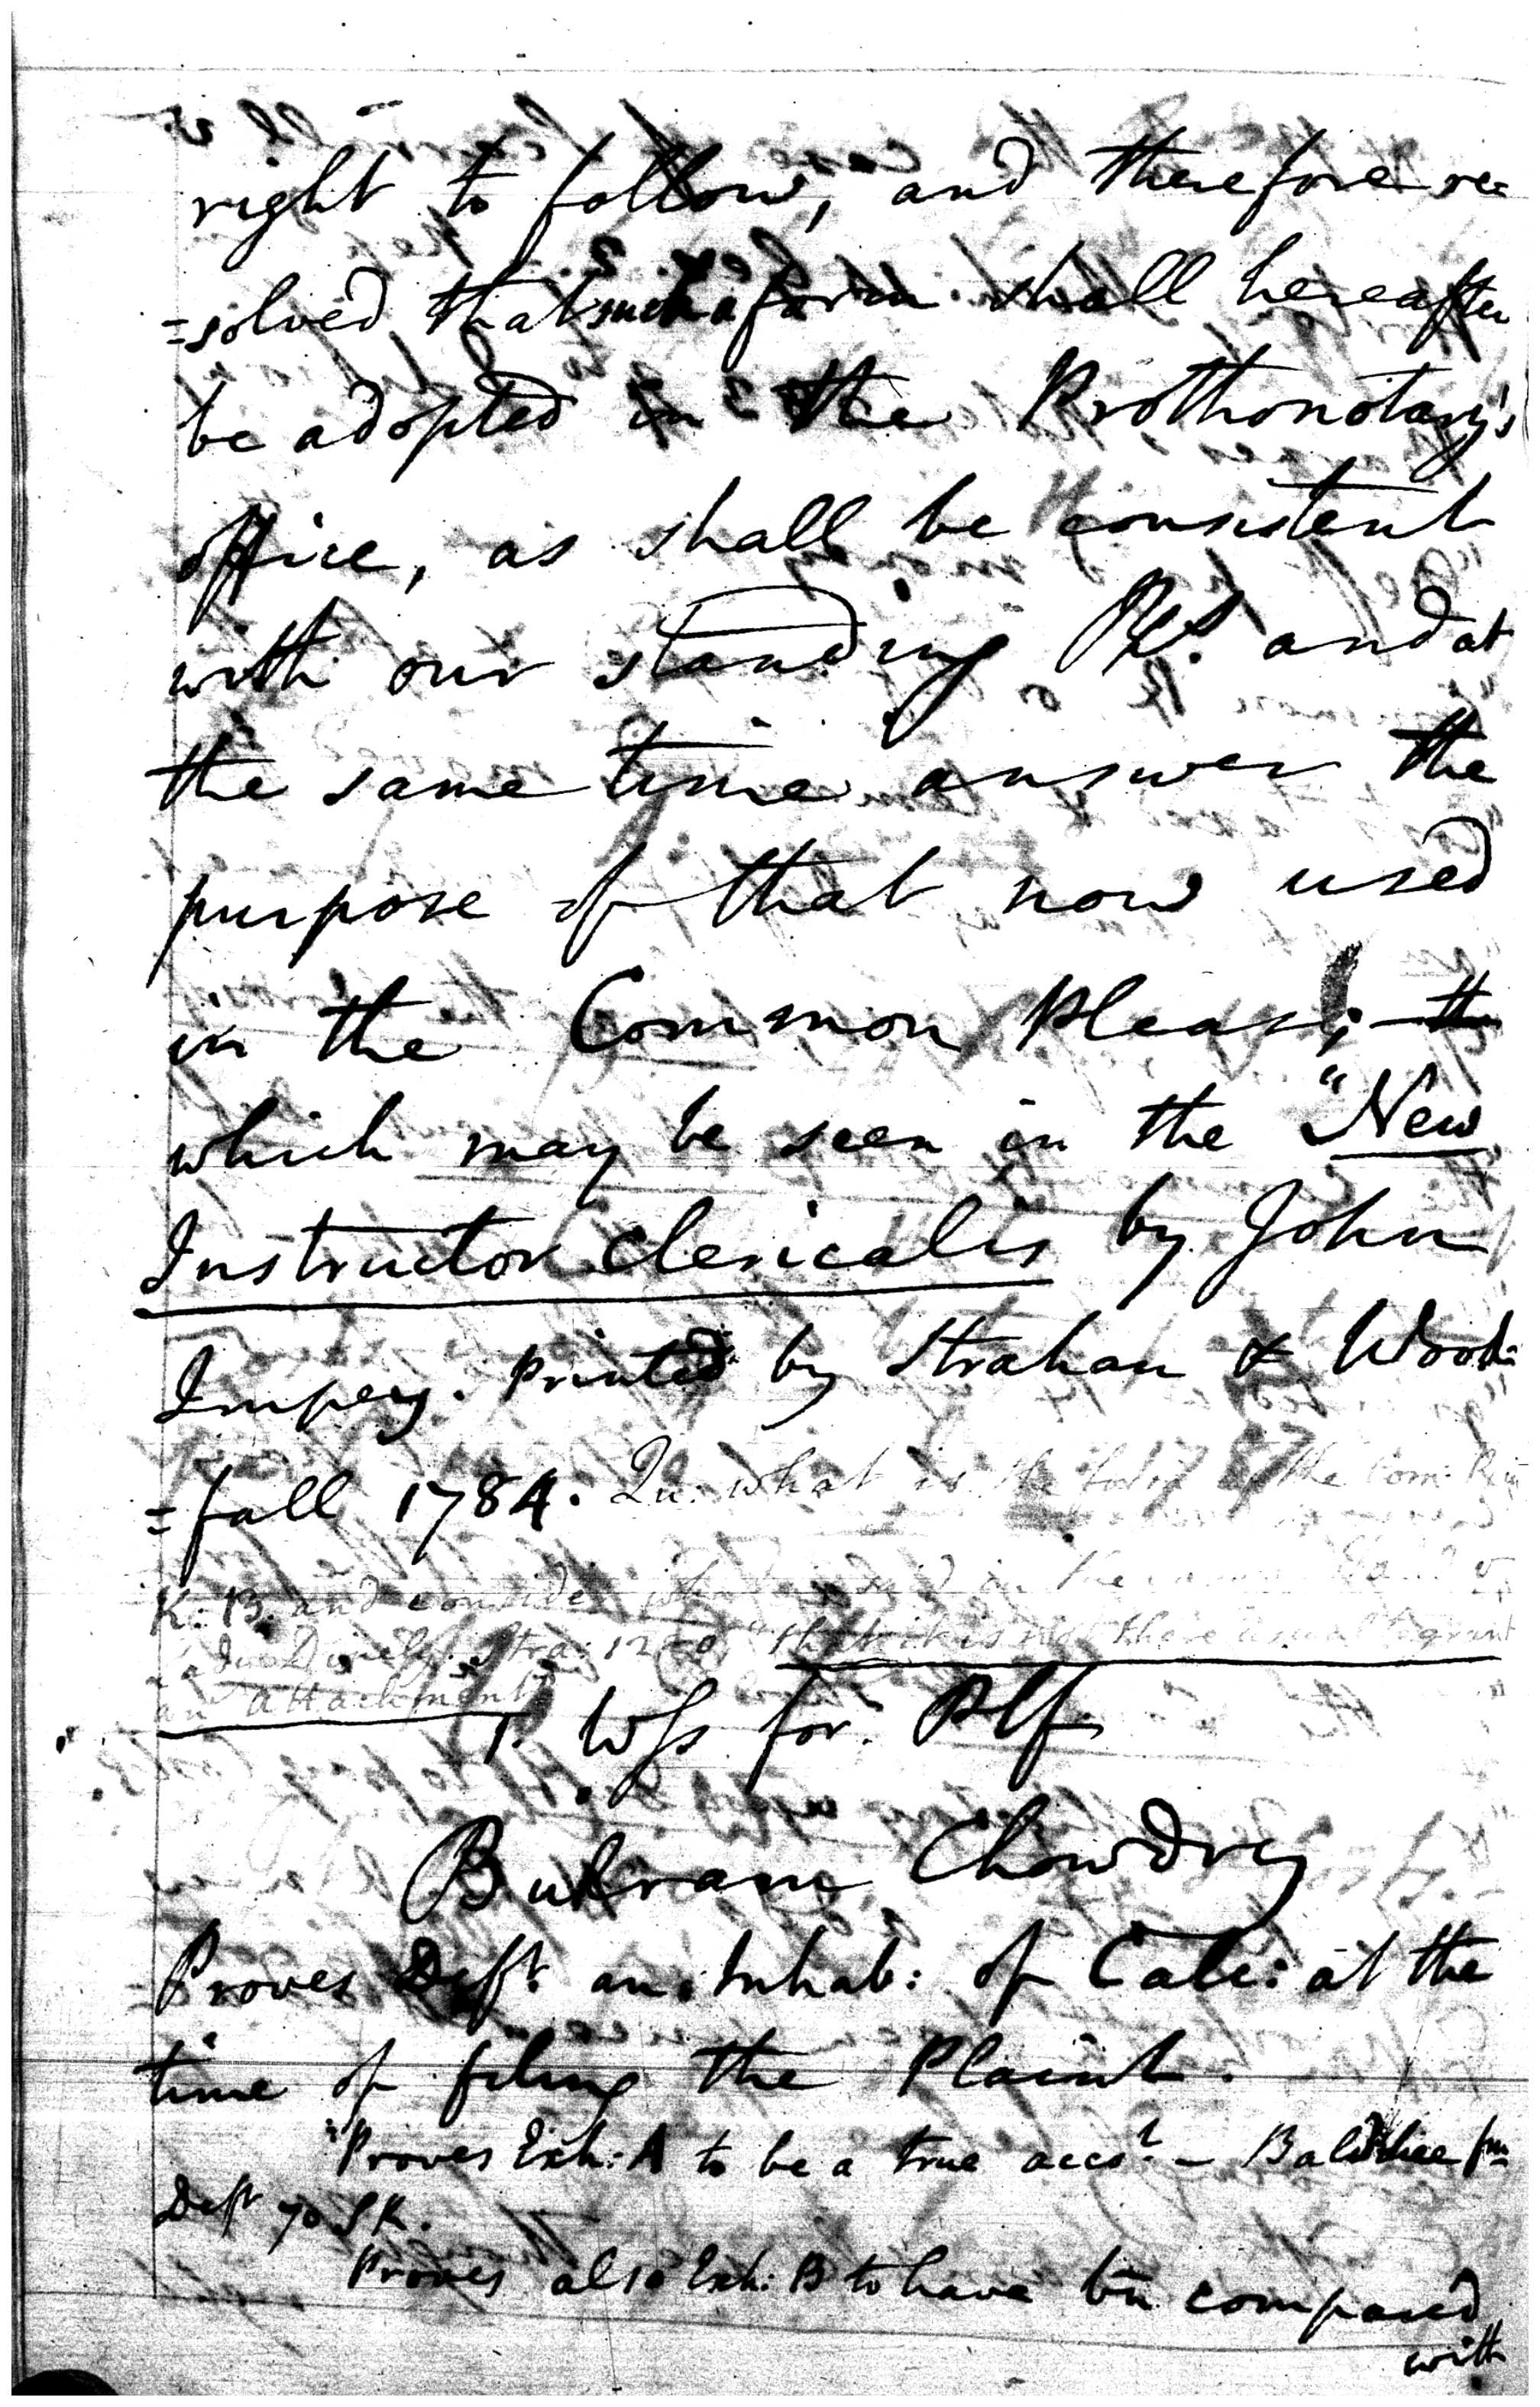 right to follow, and therefore re=
=solved that such a form shall hereafter
be adopted in the Prothonotary's
office, as shall be consistent
with our standing Rl.s and at
the same time answer the
purpose of that now used
in the Common Pleas;
which may be seen in the "New
Instructor Clericalis by John
Impey. Printed by Strahan & Wood=
=fall 1784. Qu: what is the in the Com:
K: B. and consider what is said in the
Stra: "that it is not there usual to grant
an attachment"
1. Wss for Plf
Bulram Chowdrey
Proves Deft an Inhab: of Calc: at the
time of filing the Plaint.
Proves Exh: A to be a true acct – Bal due fm
Deft 70 SR.
Proves also Exh: B to have bn compared
with